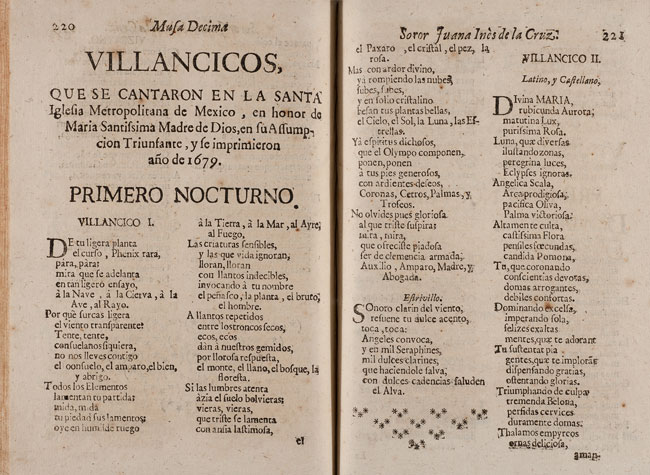 220 Musa Decima
VILLANCICOS,
QUE SE CANTARON EN LA SANTA
Iglesia Metropolitana de Mexico, en honor de
Maria Santissima Madre de Dios, en su Assump-
cion Triunfante, y se imprimieron
año de 1679.
PRIMERO NOCTURNO.
VILLANCICO I.
DE tu ligera planta
el curso, Phenix rara,
pára, pára:
mira que se adelanta
en tan ligero ensayo,
à la Nave, à la Cierva, à la
Ave, al Rayo.
Por què surcas ligera
el viento transparente?
Tente, tente,
consuelanos siquiera,
no nos lleves contigo
el consuelo, el amparo, el bien,
y abrigo.
Todos los Elementos
lamentan tu partida:
mida, mida
tu piedad sus lamentos;
oye en humilde ruego
à la Tierra, à la Mar, al Ayre,
al Fuego.
Las criaturas sensibles,
y las que vida ignoran,
lloran, lloran
con llantos indecibles,
invocando à tu nombre
el peñasco, la planta, el bruto,
el hombre.
A llantos repetidos
entre los troncos secos,
ecos, ecos
dàn à nuestros gemidos,
por llorosa respuesta,
el monte, el llano, el bosque, la
floresta.
Si las lumbres atenta
àzia el suelo bolvieras;
vieras, vieras,
que triste se lamenta
con ansia lastimosa,
el
Soror Juana Inès de la Cruz. 221
el Paxaro, el cristal, el pez, la
rosa.
Mas con ardor divino,
ya rompiendo las nubes,
subes, subes,
y en folio cristalino
besan tus plantas bellas,
el Cielo, el Sol, la Luna, las Es-
trellas.
Yà espiritus dichosos,
que el Olympo componen,
ponen, ponen
à tus pies generosos,
con ardientes deseos,
Coronas, Cetros, Palmas, y
Trofeos.
No olvides pues gloriosa
al que triste suspira:
mira, mira,
que ofreciste piadosa
ser de clemencia armada,
Auxilio, Amparo, Madre, y
Abogada.
Estrivillo.
SOnoro clarin del viento,
resuene tu dulce acento,
toca, toca:
Angeles convoca,
y en mil Seraphines,
mil dulces clarines,
que haciendole salva,
con dulces cadencias saluden
el Alva.
VILLANCICO II.
Latino, y Castellano.
DIvina MARIA,
rubicunda Aurora;
matutina Lux,
purissima Rosa.
Luna, quæ diversas
ilustrando zonas,
peregrina luces,
Eclypses ignoras.
Angelica Scala,
Arca prodigiosa,
pacifica Oliva,
Palma victoriosa.
Altamente culta,
castissima Flora
pensiles fœcundas,
candida Pomona.
Tu, quæ coronando
conscientias devotas,
domas arrogantes,
debiles confortas.
Dominando excelsa,
imperando sola,
felizes exaltas
mentes, quæ te adorant
Tu sustentas pia
gentes, quæ te implorant
dispensando gratias,
ostentando glorias.
Triumphando de culpa
tremenda Belona,
perfidas cervices
duramente domas.
Thalamos empyreos
ornas deliciosa,
aman-